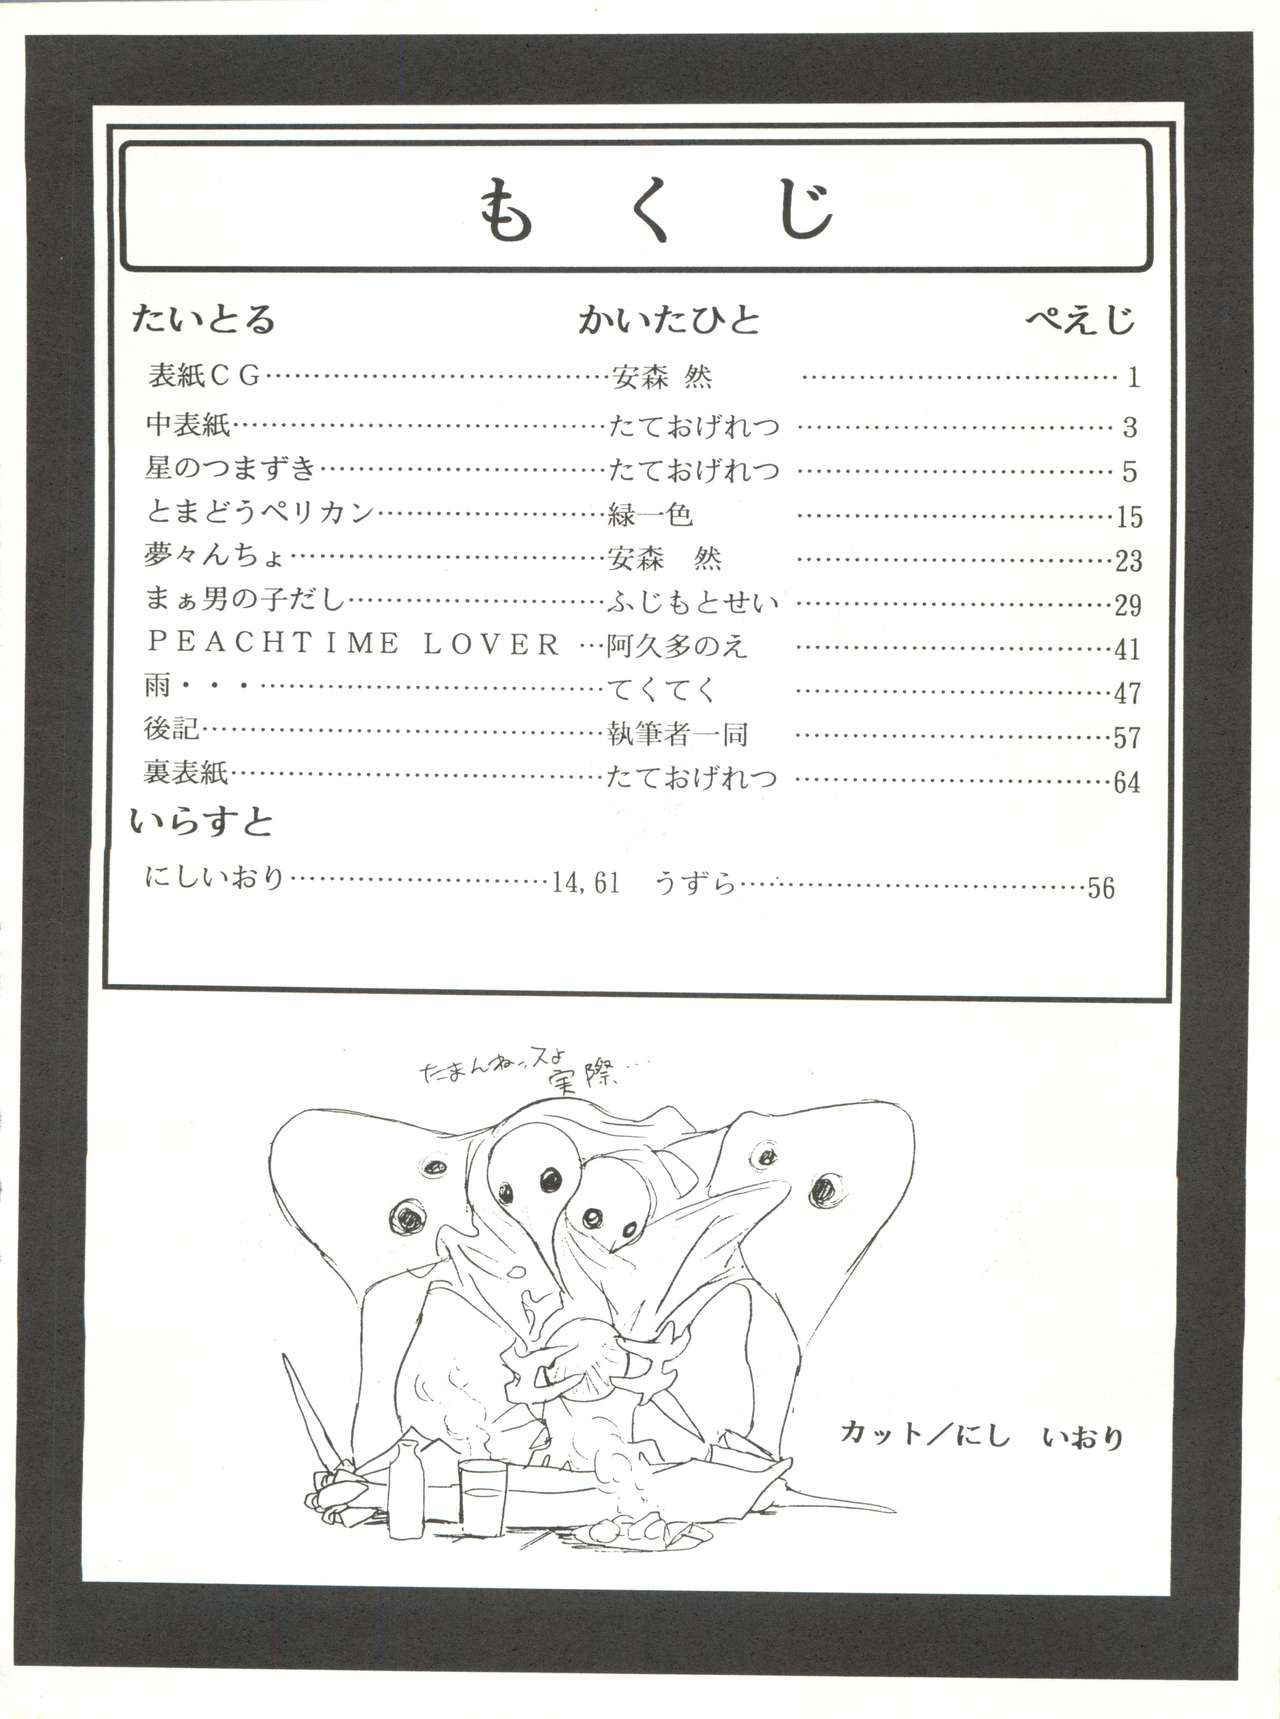 もくじ
たいとる かいたひと ぺえじ
表紙ＣＧ……………………………………安森 然 ……………………………………1
中表紙……………………………………たておげれつ ……………………………………3
星のつまずき……………………………………たておげれつ ……………………………………5
とまどうペリカン……………………………………緑一色 ……………………………………15
夢々んちょ……………………………………安森　然 ……………………………………23
まぁ男の子だし……………………………………ふじもとせい ……………………………………29
ＰＥＡＣＨＴＩＭＥ ＬＯＶＥＲ …阿久多のえ ……………………………………41
雨・・・……………………………………てくてく ……………………………………47
後記……………………………………執筆者一同 ……………………………………57
裏表紙……………………………………たておげれつ ……………………………………64
いらすと
にしいおり……………………………14,61　うずら……………………………………56
たまんねッスよ
実際…
カット／にし　いおり